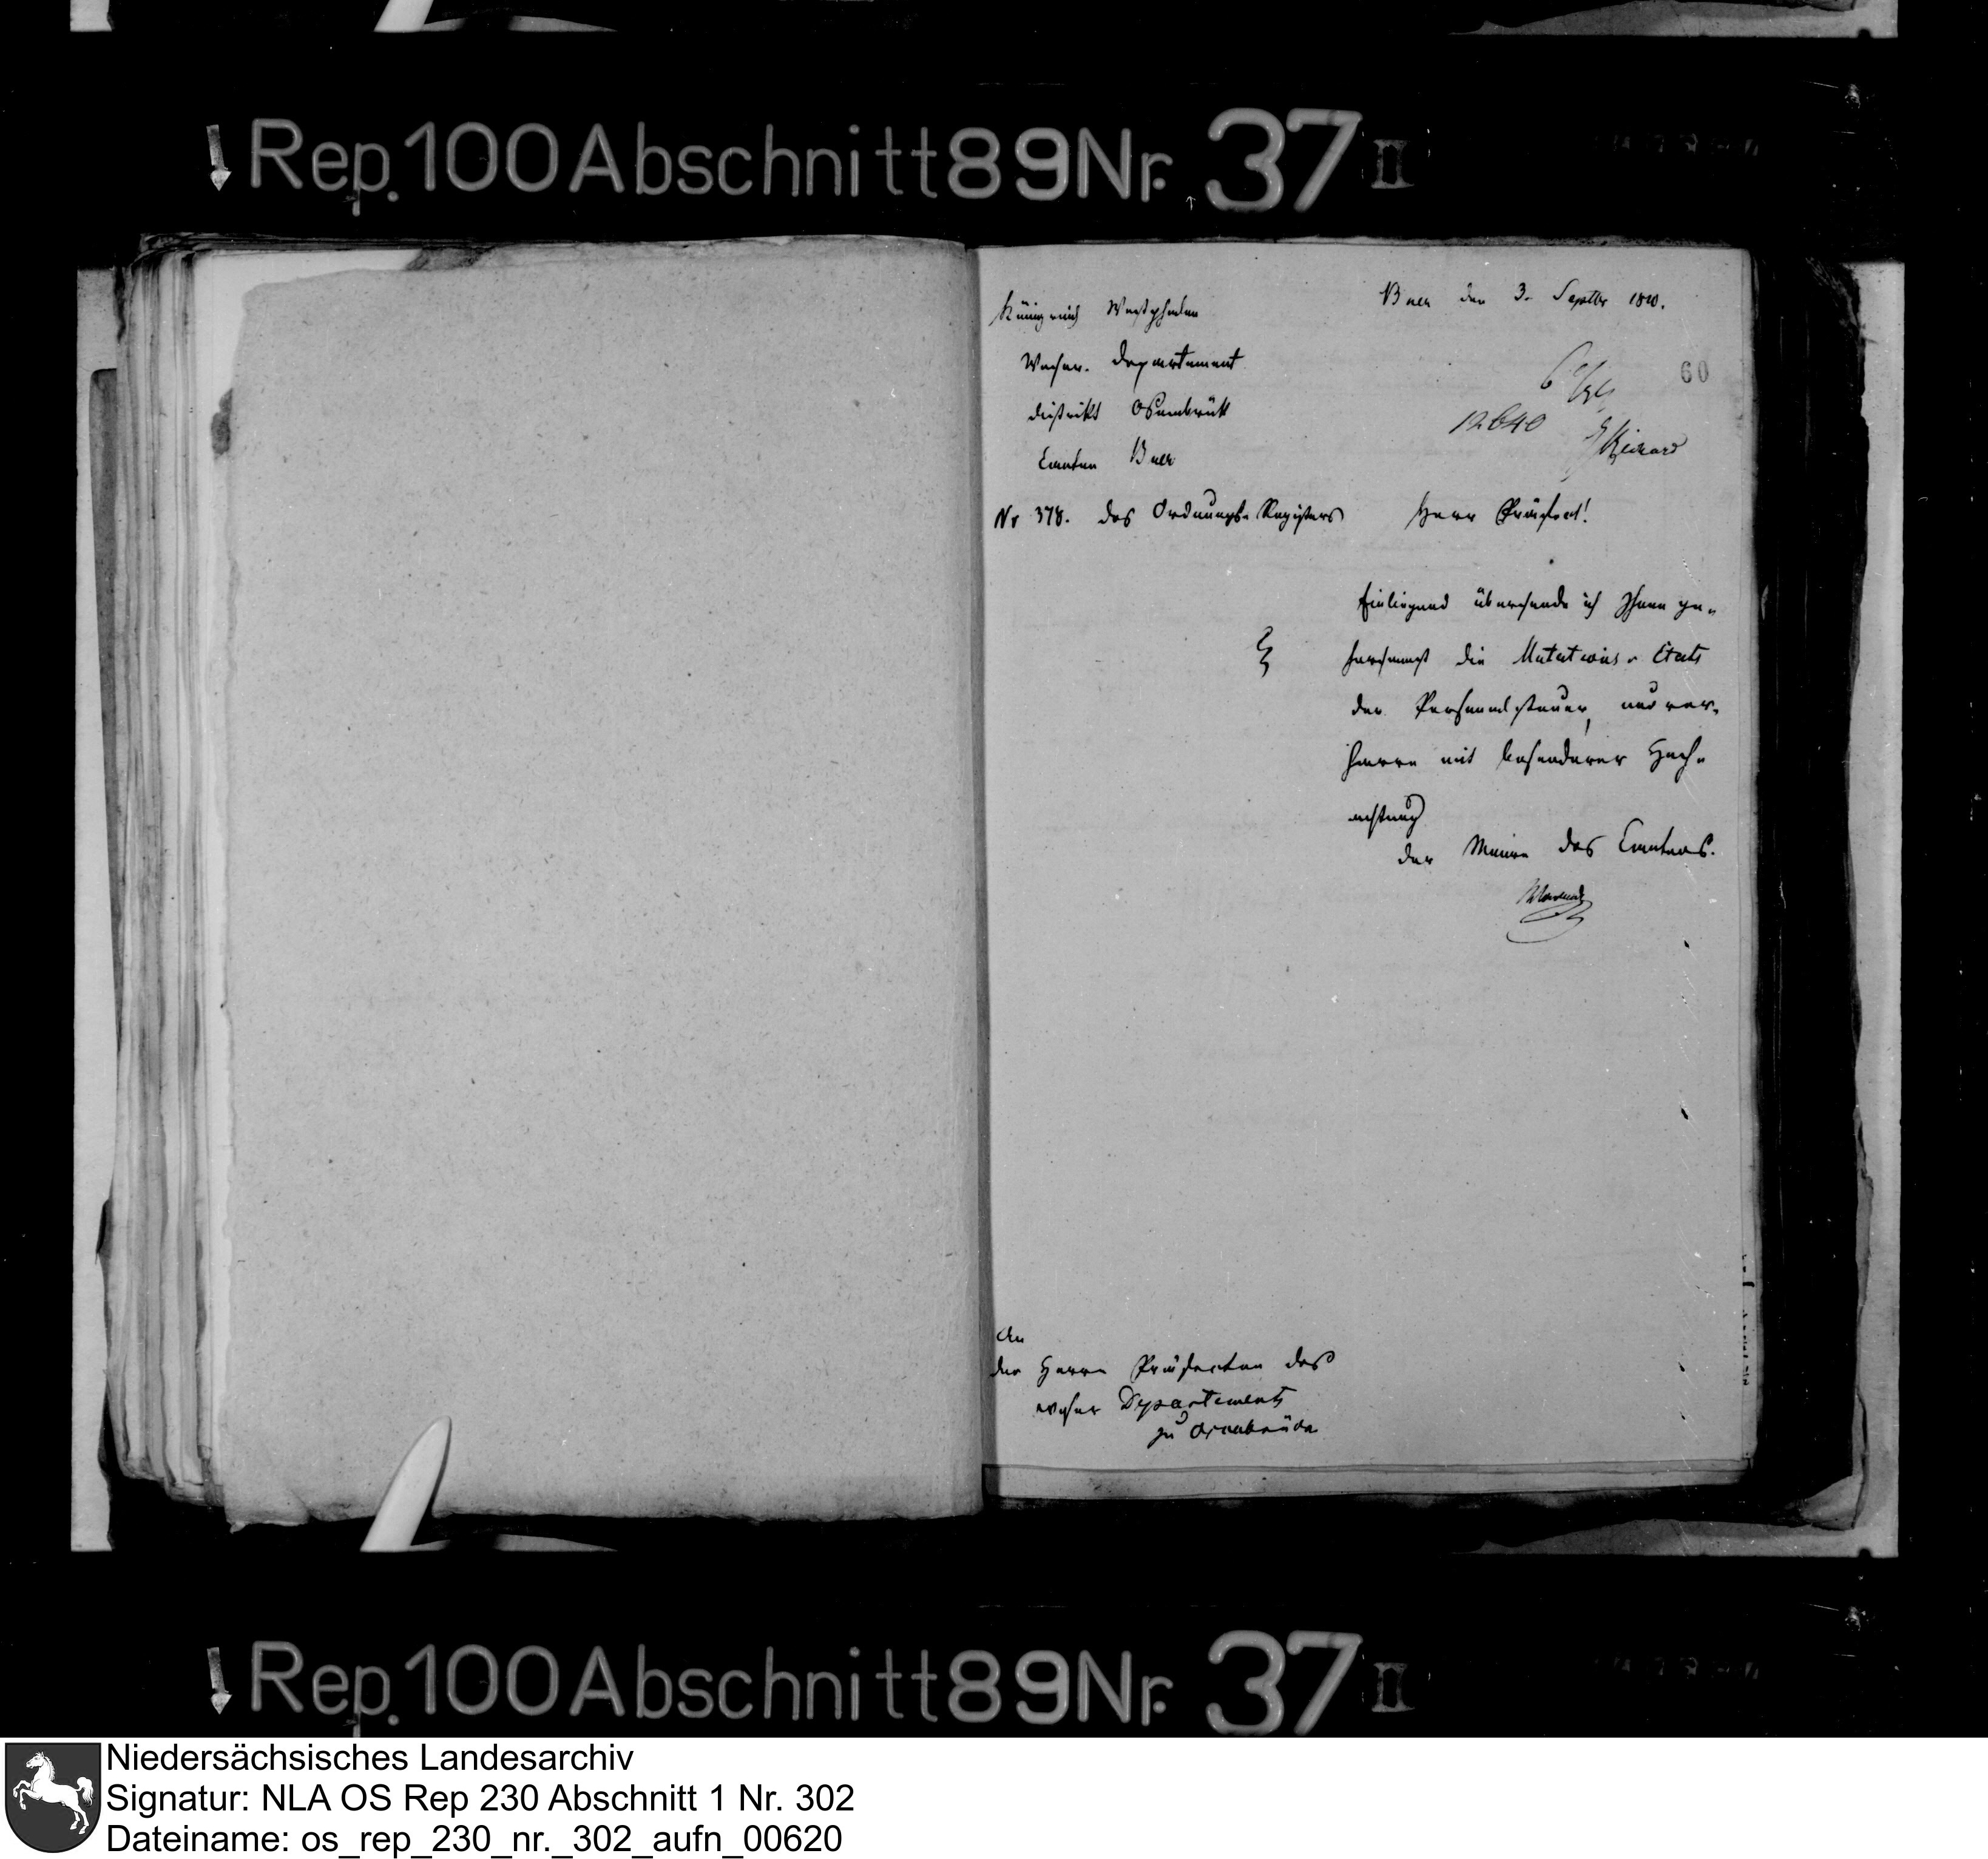 Rep. 100 Abschnitt 89 Nr. 37 II
Königreich Westphalen
Buer den 3. Septbr 1810.
Weser. Departement
60
District Osnabrück
12640
Canton Buer
Nr 378. des Ordnungs-Registers
Herr Präfect!
Einliegend übersende ich Ihnen ge-
horsamst die Mutations-Etats
der Personalsteuer, und ver-
harre mit besonderer Hoch-
achtung
der Maire des Cantons.
An
den Herrn Präfecten des
Weser Departements
zu Osnabrück
Rep. 100 Abschnitt 89 Nr. 37 II
Niedersächsisches Landesarchiv
Signatur: NLA OS Rep 230 Abschnitt 1 Nr. 302
Dateiname: os_rep_230_nr._302_aufn_00620